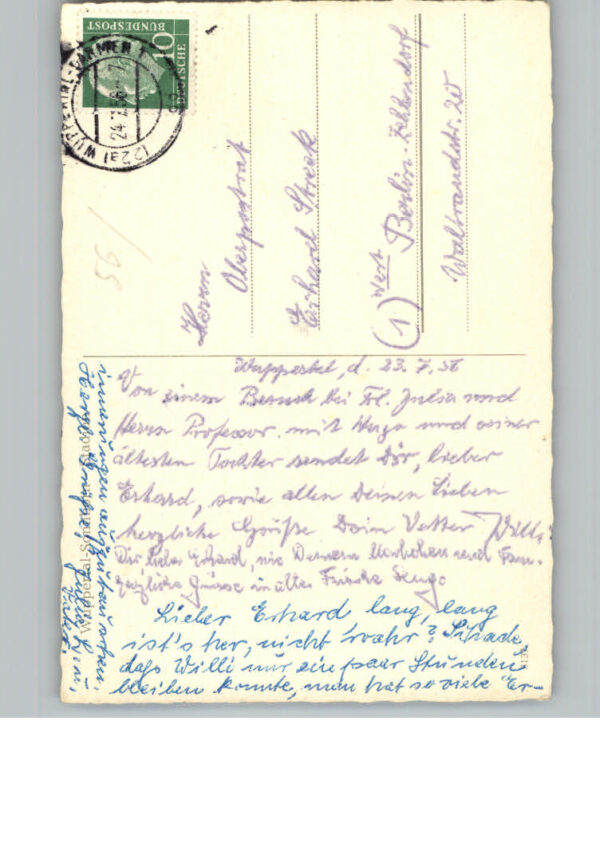 10
DEUTSCHE
BUNDESPOST
(22a) WUPPERTAL-BARMEN 1
24.7.56
56/
Herrn
Oberpostrat
Erhard Streck
(1) West Berlin-Zehlendorf
Waltraudstr. 20
Wuppertal, d. 23.7.56
Von einem Besuch bei Frl. Julia und
Herrn Professor mit Hugo und seiner
ältesten Tochter sendet Dir, lieber
Erhard, sowie allen Deinen Lieben
herzliche Grüße Dein Vetter Willi
Dir lieber Erhard, wie Deinem
herzliche Grüsse in alter Frische Hugo
Lieber Erhard lang, lang
ist's her, nicht wahr? Schade,
daß Willi nur ein paar Stunden
bleiben konnte, man hat so viele "Er-
innerungen auszutauschen.
Herzl. Grüße,
Wuppertal